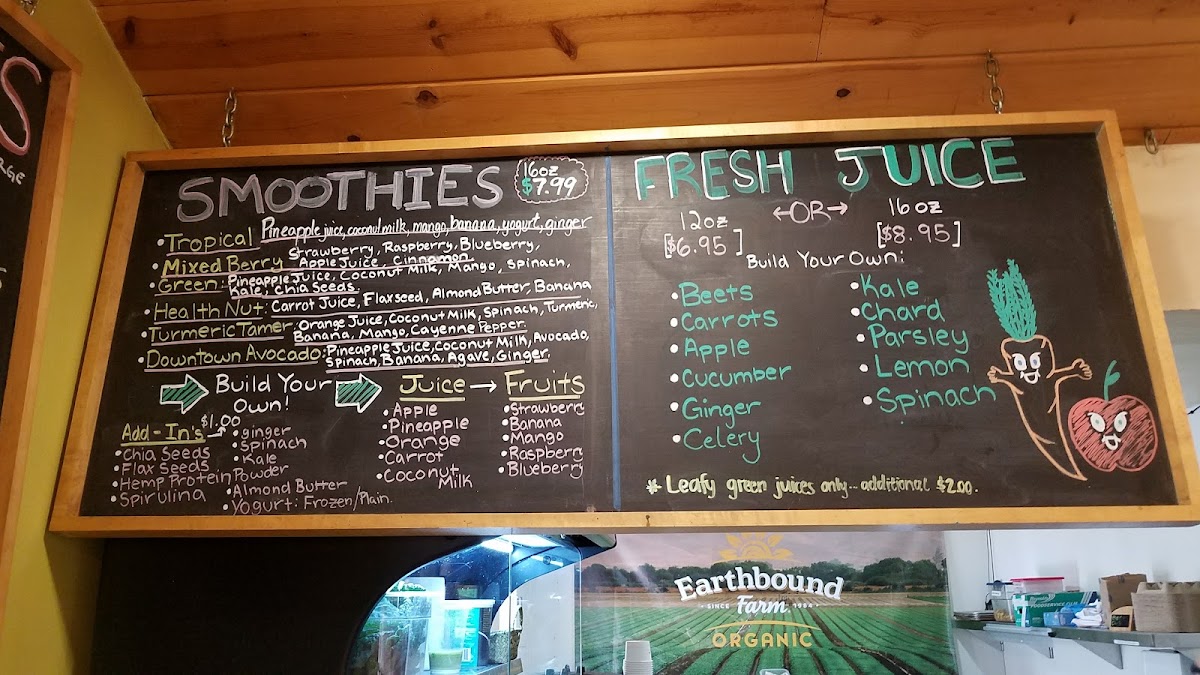 S
RGE
SMOOTHIES
16oz
$7.99
•Tropical Pineapple juice, coconut milk, mango, banana, yogurt, ginger
•Mixed Berry Strawberry, Raspberry, Blueberry,
Apple Juice, Cinnamon.
•Green: Pineapple Juice, Coconut Milk, Mango, Spinach,
Kale, Chia Seeds.
•Health Nut: Carrot Juice, Flaxseed, Almond Butter, Banana
•Turmeric Tamer: Orange Juice, Coconut Milk, Spinach, Turmeric,
Banana, Mango, Cayenne Pepper.
•Downtown Avocado: Pineapple Juice, Coconut Milk, Avocado,
Spinach, Banana, Agave, Ginger.
Build Your
Own!
Add-In's $1.00
•Chia Seeds
•Flax Seeds
•Hemp Protein Powder
•Spirulina
•ginger
•Spinach
•Kale
•Almond Butter
•Yogurt: Frozen/Plain.
Juice → Fruits
•Apple
•Pineapple
•Orange
•Carrot
•Coconut
Milk
•Strawberry
•Banana
•Mango
•Raspberry
•Blueberry
FRESH JUICE
12oz ←OR→ 16oz
[$6.95] [$8.95]
Build Your Own:
•Beets
•Carrots
•Apple
•Cucumber
•Ginger
•Celery
•Kale
•Chard
•Parsley
•Lemon
•Spinach
* Leafy green juices only - additional $2.00.
Earthbound
SINCE Farm. 1984
ORGANIC
FOODSERVICE FILM